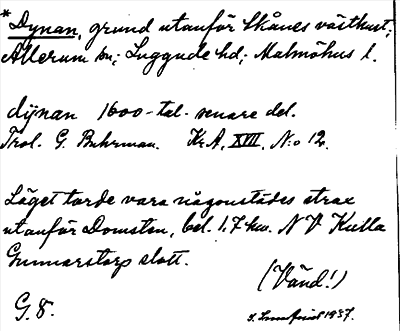 * Dynan, grund utanför Skånes västkust;
Allerum sn; Luggude hd; Malmöhus l.
dÿnan 1600-tal. senare del.
Trol. G. Buhrman. Kr.A, XVII, N:o 12.
Läget torde vara någonstädes strax
utanför Domsten, bel. 1,7 km. NV Kulla
Gunnarstorp slott.
(Vänd!)
G. 8.
1937.